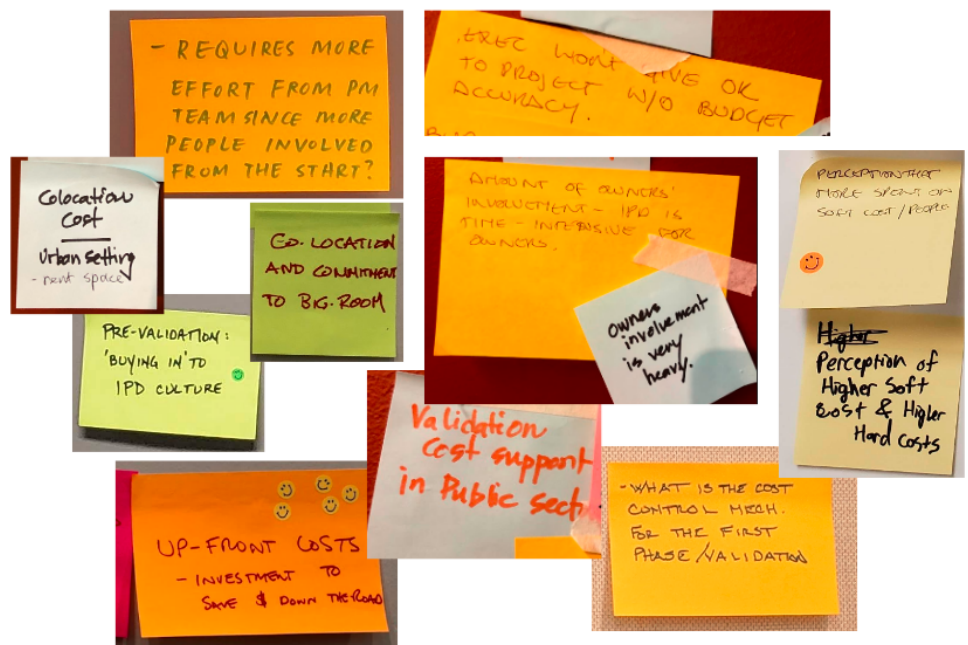 - REQUIRES MORE
EFFORT FROM PM
TEAM SINCE MORE
PEOPLE INVOLVED
FROM THE START?
WON'T GIVE OK
TO PROJECT W/O BUDGET
ACCURACY.
Colocation
Cost
Urban Setting
- rent space
CO-LOCATION
AND COMMITMENT
TO BIG-ROOM
AMOUNT OF OWNERS'
INVOLVEMENT - IPD IS
TIME - INTENSIVE FOR
OWNERS.
owners
involvement
is very
heavy.
PERCEPTION THAT
MORE SPENT ON
SOFT COST/PEOPLE
PRE-VALIDATION:
'BUYING IN' TO
IPD CULTURE
Higher
Perception of
Higher Soft
Cost & Higher
Hard Costs
Validation
Cost support
in Public sect
UP-FRONT COSTS
- INVESTMENT TO
SAVE $ DOWN THE ROAD
- WHAT IS THE COST
CONTROL MECH.
FOR THE FIRST
PHASE/VALIDATION